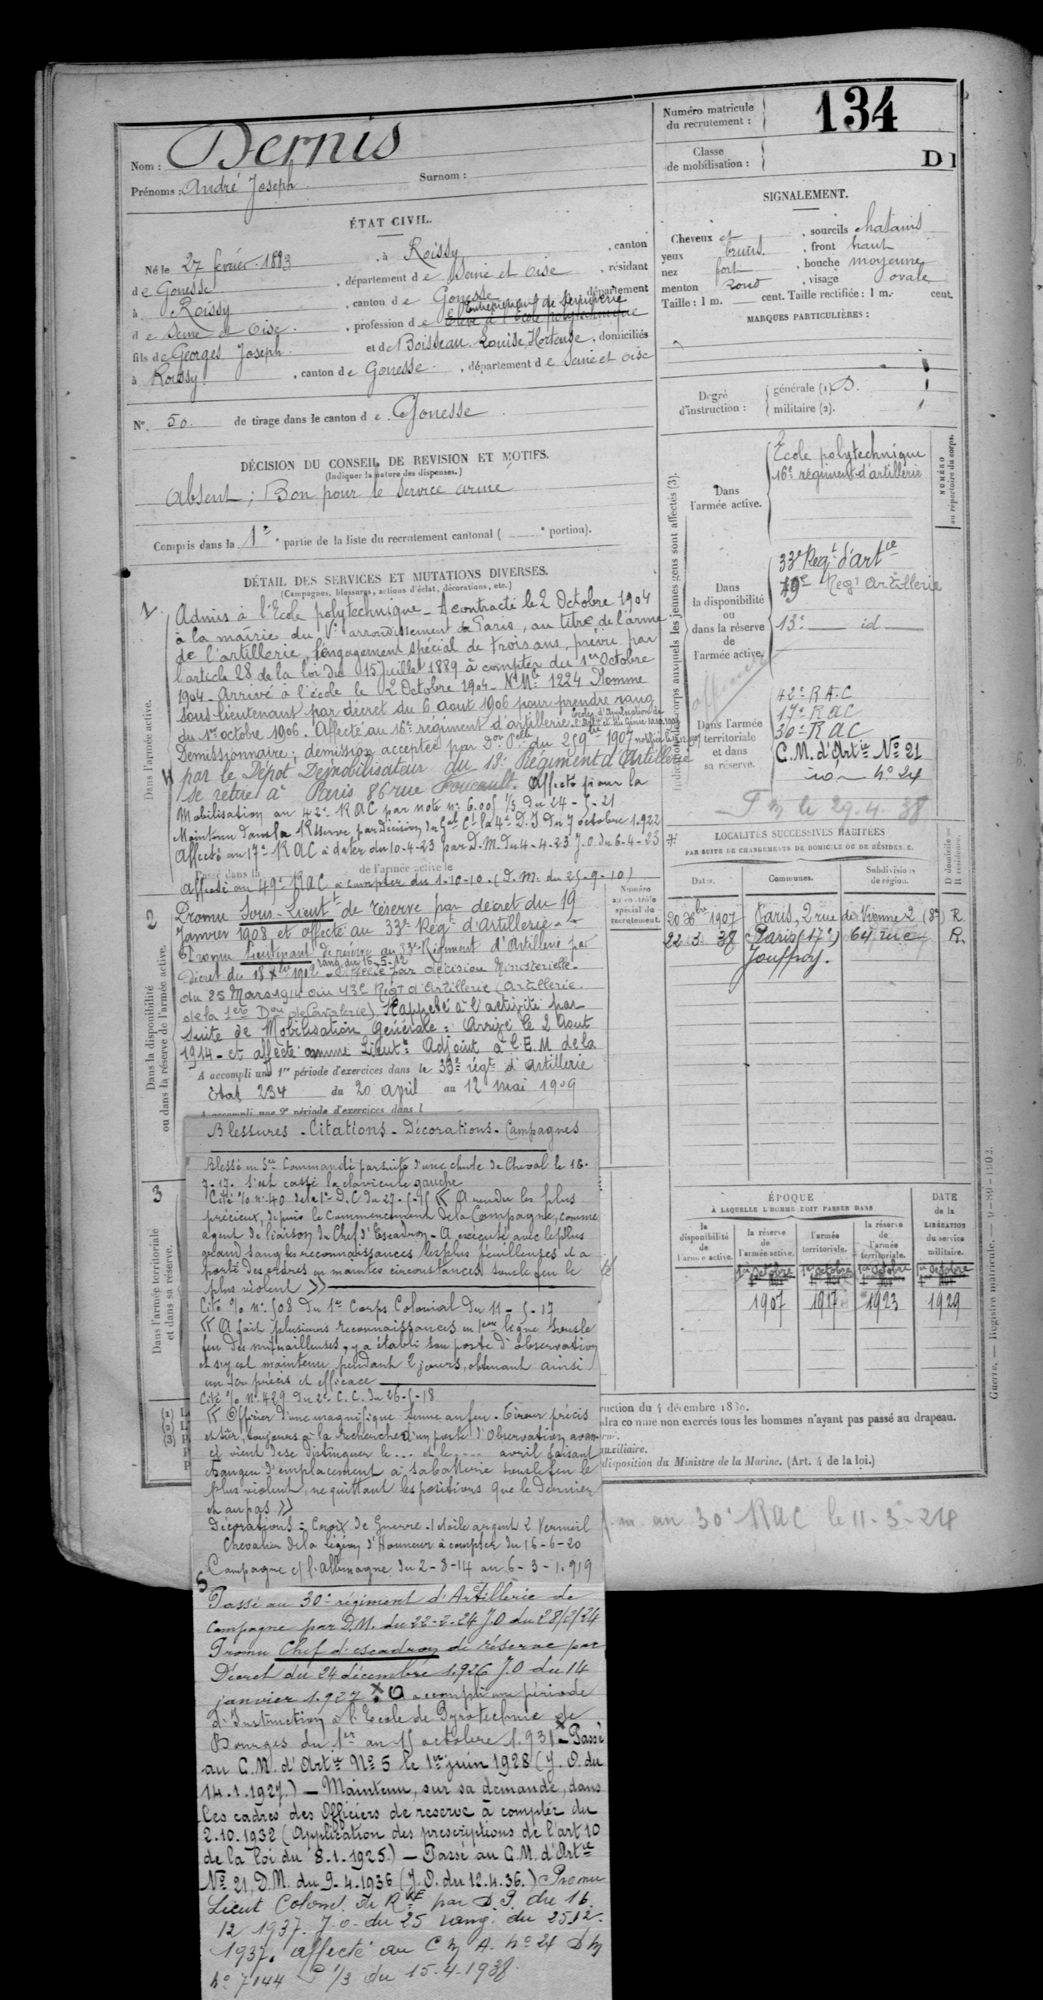 Nom : Dernis
Prénoms : André Joseph Surnom :
Numéro matricule du recrutement : 134
Classe de mobilisation :
D 1
ÉTAT CIVIL.
Né le 27 février 1883, à Roissy, canton
de Gonesse, département de Seine et Oise, résidant
à Roissy, canton de Gonesse, département
de Seine et Oise, profession de Entrepreneur de Serrurerie Elève à l'Ecole polytechnique
fils de Georges Joseph et de Boisseau Louise, Hortense, domiciliés
à Roissy, canton de Gonesse, département de Seine et Oise
N° 50 de tirage dans le canton de Gonesse
SIGNALEMENT.
Cheveux et sourcils chatains
yeux bruns, front haut
nez fort, bouche moyenne
menton rond, visage ovale
Taille : 1 m. cent. Taille rectifiée : 1 m. cent.
MARQUES PARTICULIÈRES :
Degré d'instruction : générale (1) militaire (2).
DÉCISION DU CONSEIL DE REVISION ET MOTIFS.
(Indiquer la nature des dispenses.)
Absent ; Bon pour le service armé
Compris dans la 1re partie de la liste du recrutement cantonal ( e portion).
DÉTAIL DES SERVICES ET MUTATIONS DIVERSES.
(Campagnes, blessures, actions d'éclat, décorations, etc.)
Dans l'armée active.
Admis à l'Ecole polytechnique - A contracté le 2 Octobre 1904
à la mairie du Ve arrondissement de Paris, au titre de l'arme
de l'artillerie, l'engagement spécial de trois ans, prévu par
l'article 28 de la loi du 15 Juillet 1889 à compter du 1er Octobre
1904 - Arrivé à l'école le 2 Octobre 1904 - N° Mle 1224 Nommé
sous-lieutenant par décret du 6 aout 1906 pour prendre rang
du 1er octobre 1906. Affecté au 16e régiment d'artillerie.
Démissionnaire ; démission acceptée par Don Pelle du 25 9bre 1907
par le Dépot Démobilisateur du 13e Régiment d'Artillerie
se retire à Paris 86 rue Foucault. Affecté pour la
Mobilisation au 42e RAC par note n° 6.005 1/3 du 24-5-21
Maintenu dans la Réserve par décision du Gal Ct la 4e D.I du 7 octobre 1922
Affecté au 17e RAC à dater du 10-4-23 par D.M. du 4-4-23 J.O. du 6-4-23
Passé dans la de l'armée active le
Affecté au 49e RAC à compter du 1-10-10. (D.M. du 25-9-10)
2
Dans la disponibilité ou dans la réserve de l'armée active.
Promu Sous-Lieutt de réserve par décret du 19
Janvier 1908 et affecté au 33e Régt d'Artillerie -
Promu Lieutenant de réserve au 33e Régiment d'Artillerie par
décret du 18 Xbre 1912 - Affecté par décision Ministérielle
du 25 Mars 1914 au 13e Régt d'Artillerie (Artillerie
de la 1ère Don de Cavalerie). Rappelé à l'activité par
suite de Mobilisation Générale : Arrivé le 2 Aout
1914 - et affecté comme Lieutt Adjoint à l'E.M de la
A accompli une 1re période d'exercices dans le 33e régt d'artillerie
Etat 234 du 20 april au 12 mai 1909
A accompli une 2e période d'exercices dans l
Indication des corps auxquels les jeunes gens sont affectés (3).
NUMÉRO au répertoire du corps.
Dans l'armée active.
Ecole polytechnique
16e régiment d'artillerie
Dans la disponibilité ou dans la réserve de l'armée active.
33e Régt d'artie
49e Régt Artillerie
13e id
Dans l'armée territoriale et dans sa réserve.
42e R.A.C
17e RAC
30e RAC
C.M. d'Artie N° 21
n° 24
le 29.4.38
LOCALITÉS SUCCESSIVES HABITÉES
PAR SUITE DE CHANGEMENTS DE DOMICILE OU DE RÉSIDENCE.
Dates. Communes. Subdivisions de région. D domicile ou R résidence.
Numéro au contrôle spécial du recrutement.
20 Xbre 1907 Paris, 2 rue de Vienne (8e) R
22.3.38 Paris (17e) 64 rue Jouffroy. R.
ÉPOQUE
À LAQUELLE L'HOMME DOIT PASSER DANS
la disponibilité de l'armée active.
la réserve de l'armée active.
l'armée territoriale.
la réserve de l'armée territoriale.
DATE de la LIBÉRATION du service militaire.
1er Octobre 1er Octobre 1er Octobre 1er Octobre
1907 1917 1923 1929
3
Dans l'armée territoriale et dans sa réserve.
Guerre. — Registre matricule.
ruction du 4 décembre 1889.
dra comme non exercés tous les hommes n'ayant pas passé au drapeau.
auxiliaire.
disposition du Ministre de la Marine. (Art. 4 de la loi.)
au 30e RAC le 11-3-24
Blessures - Citations - Décorations - Campagnes
Blessé en Sce Commandé par suite d'une chute de Cheval le 18-
7-17. s'est cassé la clavicule gauche
Cité % n° 40 de la 1re D.C du 27-5-15 « A rendu les plus
précieux, depuis le Commencement de la Campagne, comme
agent de liaison du Chef d'Escadron - A exécuté avec le plus
grand sang les reconnaissances les plus périlleuses et a
porté des ordres en maintes circonstances sous le feu le
plus violent »
Cité % n° 508 du 1er Corps Colonial du 11-5-17
« A fait plusieurs reconnaissances en 1ère ligne sous le
feu des mitrailleuses, y a établi son poste d'observation
et s'y est maintenu pendant 2 jours, obtenant ainsi
un tir précis et efficace
Cité % N° 429 du 2e C.C. du 26-5-18
« Officier d'une magnifique tenue au feu - Tireur précis
et sûr, toujours à la recherche d'un poste d'Observation avan-
cé vient de se distinguer le ... et le .... avril faisant
changer d'emplacement à sa batterie sous le feu le
plus violent, ne quittant les positions que le dernier
et au pas »
Décorations : Croix de Guerre - 1 étoile argent 2 Vermeil
Chevalier de la Légion d'Honneur à compter du 16-6-20
Campagne c/ l'Allemagne du 2-8-14 au 6-3-1919
Passé au 30e régiment d'Artillerie de
Campagne par D.M. du 22-2-24 J.O du 28/2/24
Promu Chef d'escadron de réserve par
Décret du 24 décembre 1926 J.O du 14
janvier 1927 X A accompli une période
d'Instruction à l'Ecole de Pyrotechnie de
Bourges du 1er au 15 octobre 1931 X - Passé
au C.M. d'Artie N° 5 le 1er juin 1928 (J.O. du
14.1.1927.) — Maintenu, sur sa demande, dans
les cadres des Officiers de réserve à compter du
2.10.1932 (Application des prescriptions de l'art 10
de la loi du 8.1.1925.) — Passé au C.M. d'Artie
N° 21, D.M. du 9-4-1936 (J.O. du 12.4.36.) Promu
Lieut Colonel de Rve par D.P. du 16.
12 1937. J.O. du 25 rang du 25.12.
1937. affecté au C M A. n° 24 D M
N° 7144 P 1/3 du 15-4-1938